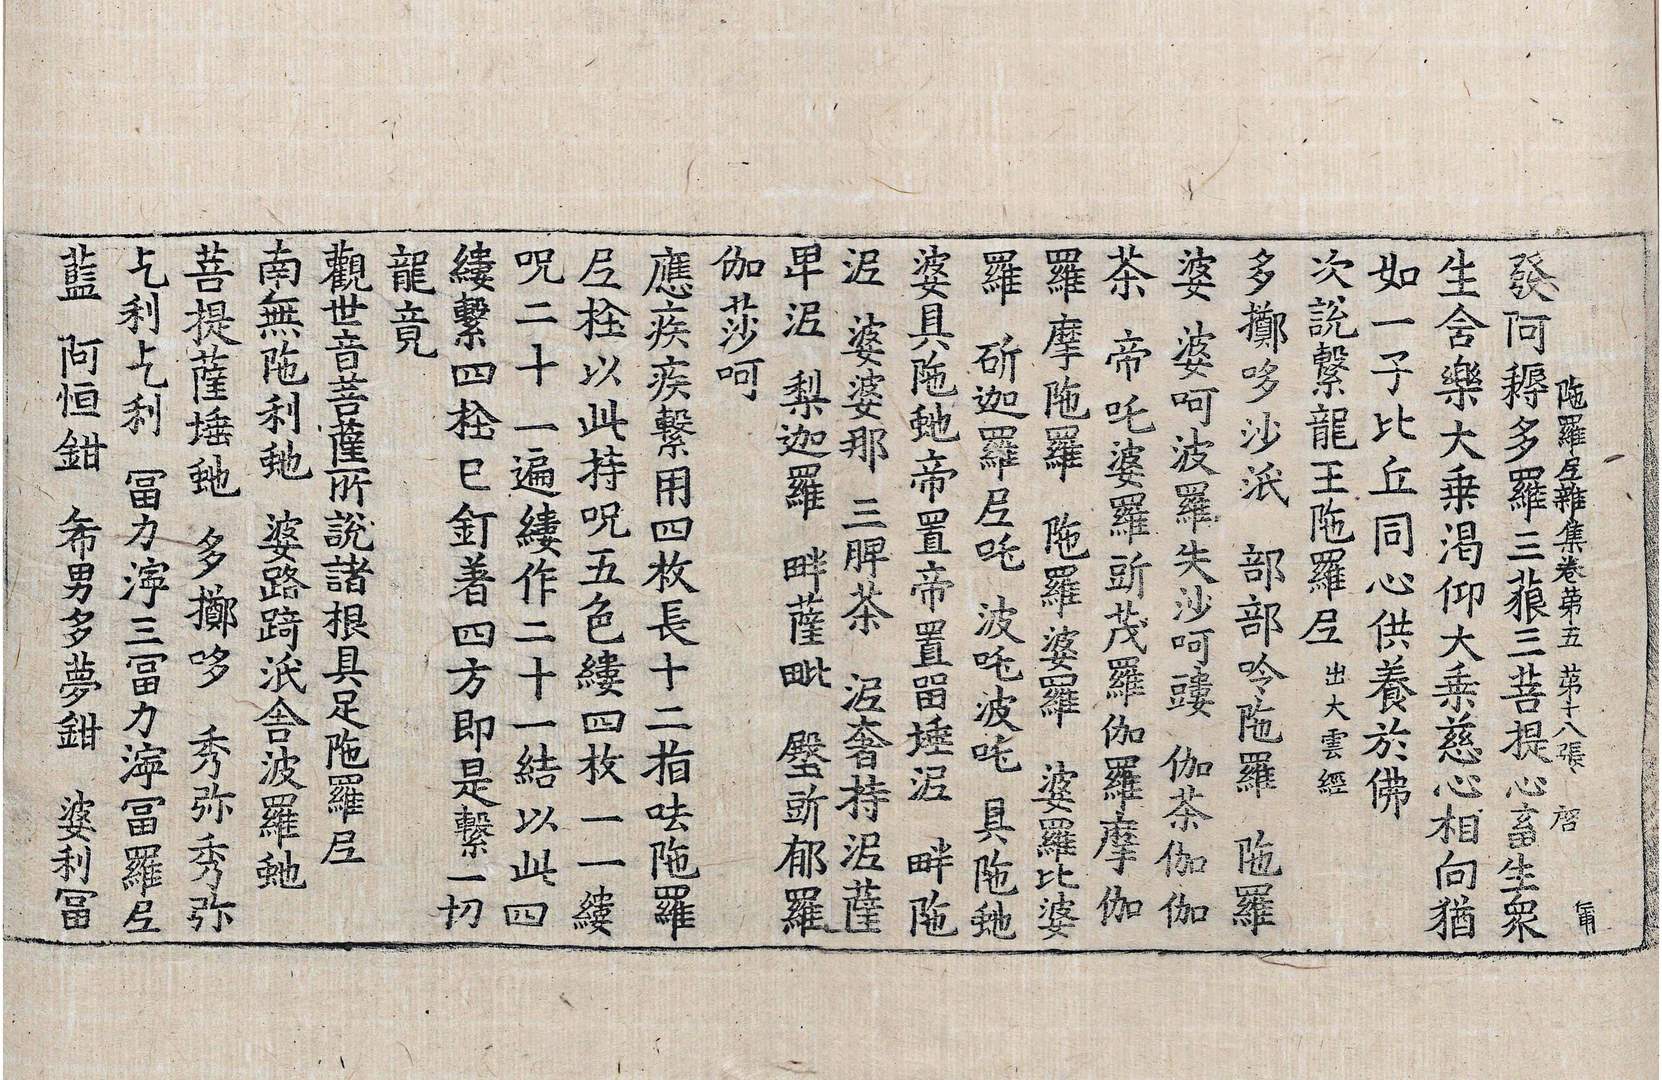 陁羅尼雜集卷苐五　苐十八張　啓
發阿耨多羅三藐三菩提心畜生衆
生舍樂大乗渴仰大乗慈心相向猶
如一子比丘同心供養於佛
次說繫龍王陁羅尼　出大雲經
多擲哆沙泜　部部吟陁羅　陁羅
婆　婆呵波羅失沙呵䜫　伽茶伽伽
茶　帝吒婆羅㪷茂羅伽羅摩伽
羅摩陁羅　陁羅婆羅　婆羅比婆
羅　斫迦羅尼吒　波吒波吒　具陁虵
婆具陁虵帝置帝置㽞埵泥　畔陁
泥　婆婆那　三脾茶　泥奢持泥薩
早泥　梨迦羅　畔薩毗　堅㪷郁羅
伽莎呵
應疾疾繫用四枚長十二指呿陁羅
尼栓以此持呪五色縷四枚一一縷
呪二十一遍縷作二十一結以此四
縷繫四栓已釘著四方即是繫一切
龍竟
觀世音菩薩所說諸根具足陁羅尼
南無陁利虵　婆路踦泜舍波羅虵
菩提薩埵虵　多擲哆　秀弥秀弥
乞利乞利　冨力濘三冨力濘冨羅尼
藍　阿恒鉗　希男多夢鉗　婆利冨